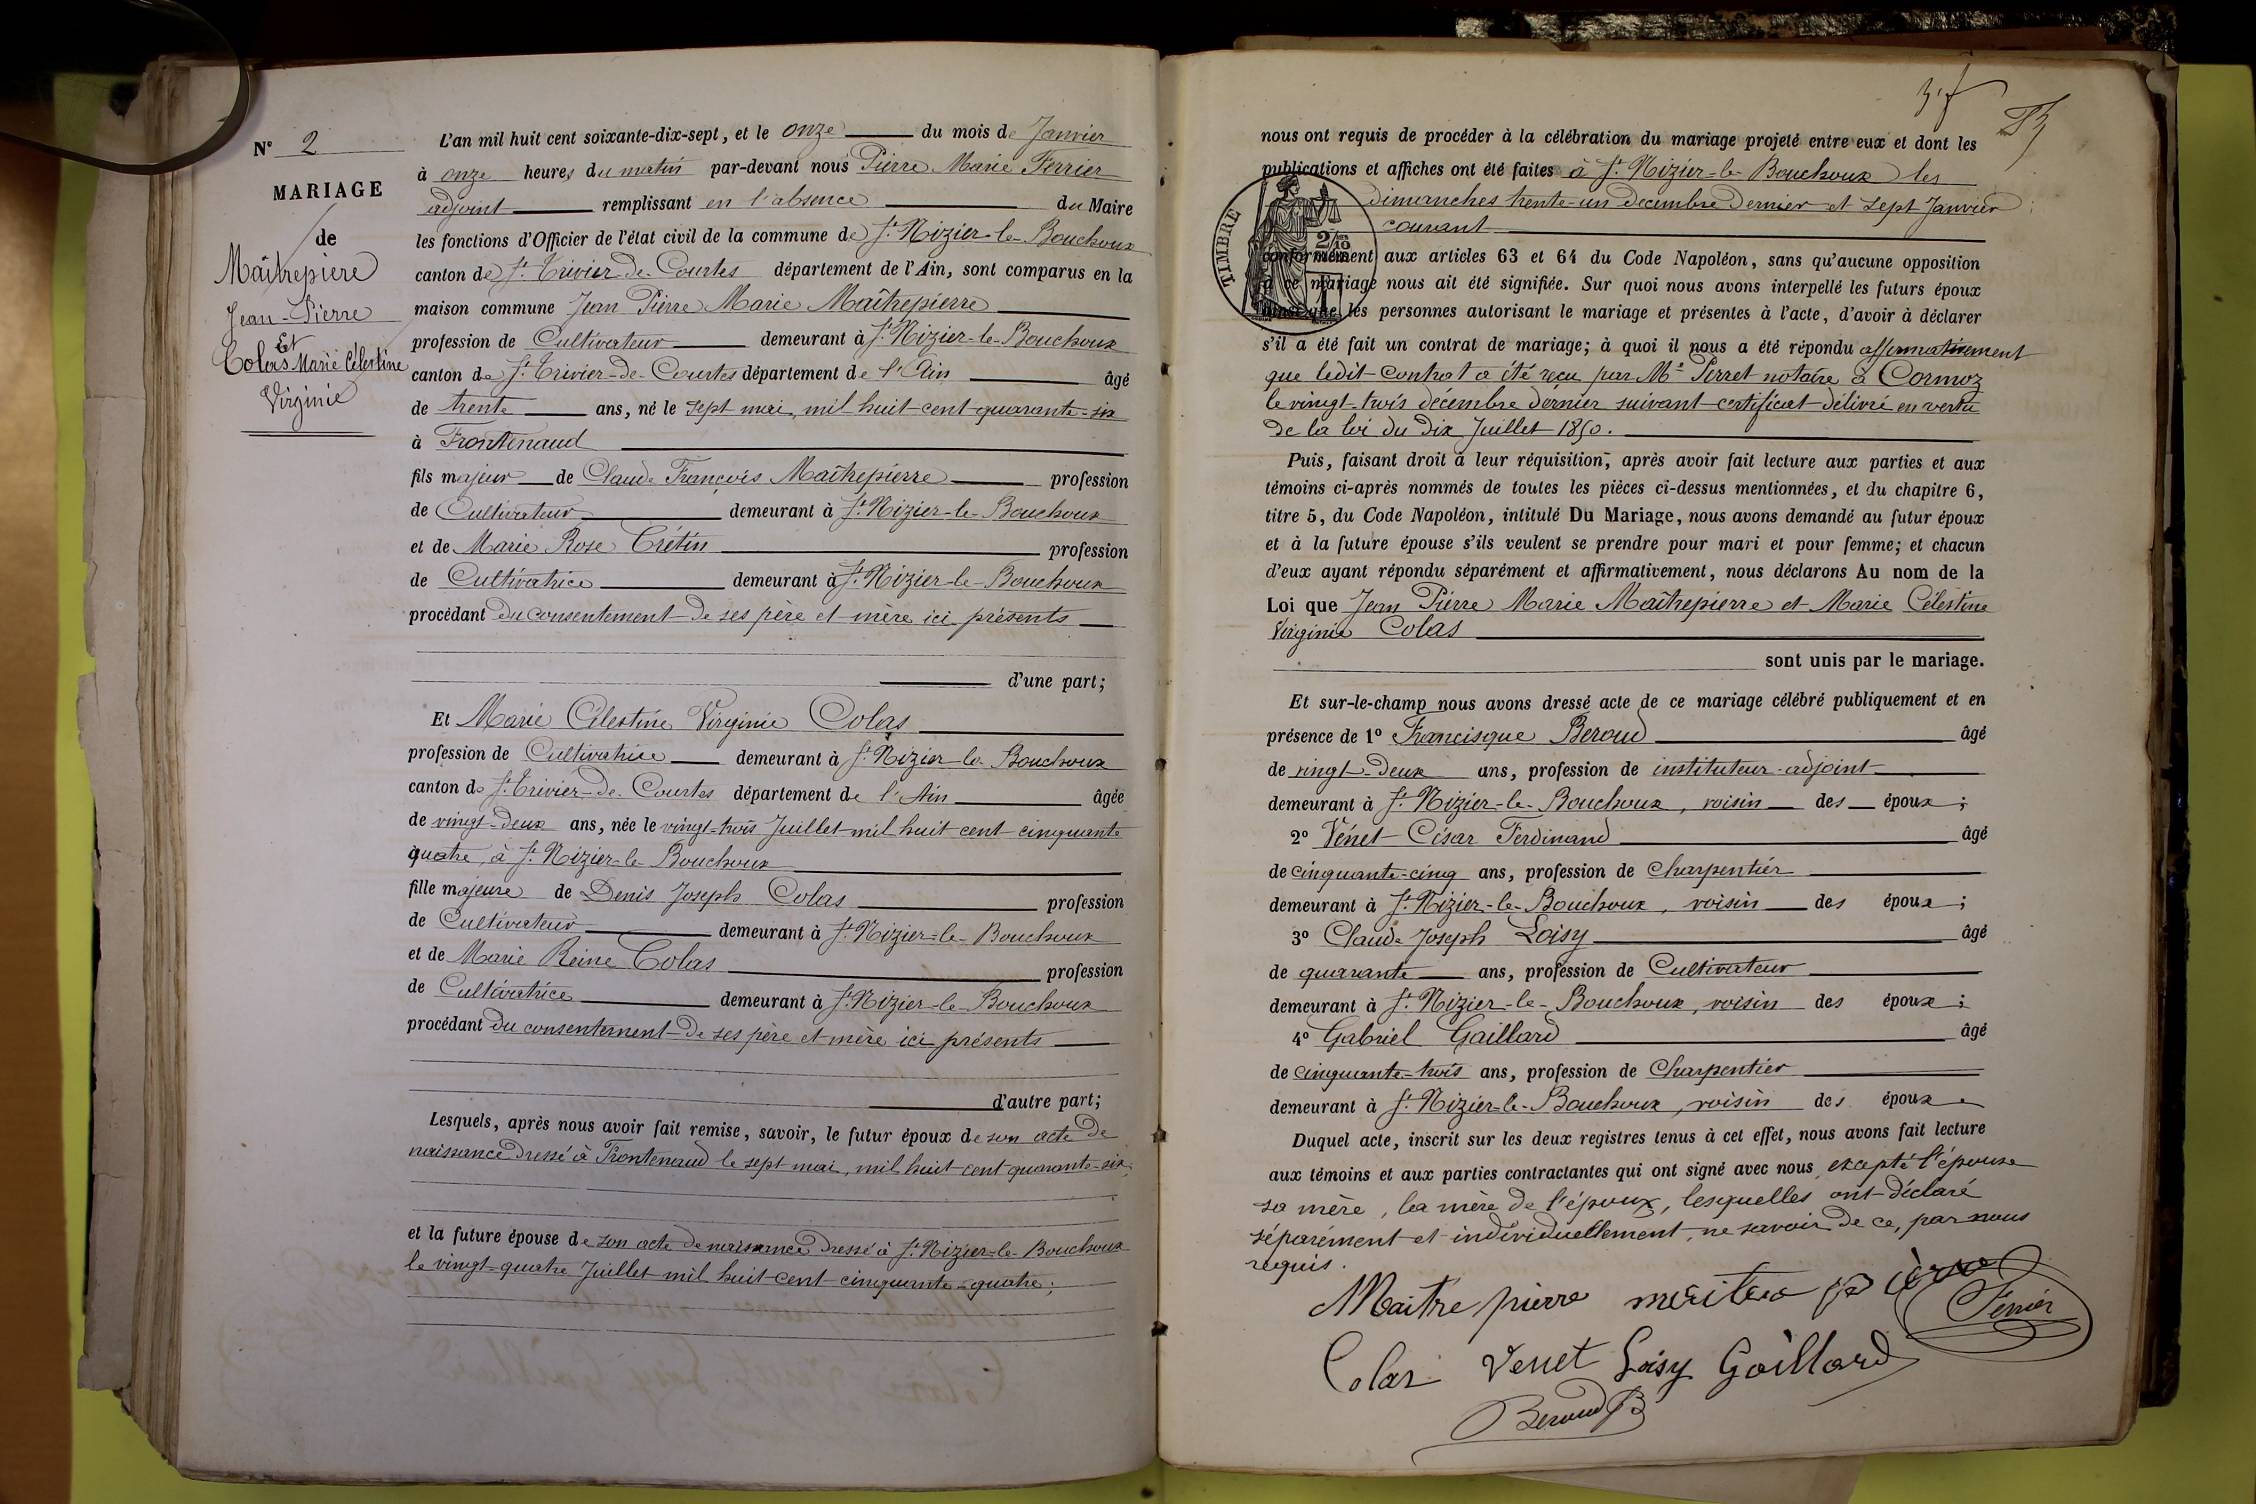 N° 2
MARIAGE
de
Maîtrepiere
Jean-Pierre
Et
Colas Marie Célestine
Virginie
L'an mil huit cent soixante-dix-sept, et le onze du mois de Janvier
à onze heures du matin par-devant nous Pierre Marie Ferrier
adjoint remplissant en l'absence du Maire
les fonctions d'Officier de l'état civil de la commune de St Nizier-le-Bouchoux
canton de St Trivier-de-Courtes département de l'Ain, sont comparus en la
maison commune Jean Pierre Marie Maîtrepierre
profession de Cultivateur demeurant à St Nizier-le-Bouchoux
canton de St Trivier-de-Courtes département de l'Ain âgé
de trente ans, né le sept mai, mil huit cent quarante-six
à Frontenaud
fils majeur de Claude François Maîtrepierre profession
de Cultivateur demeurant à St Nizier-le-Bouchoux
et de Marie Rose Crétin profession
de Cultivatrice demeurant à St Nizier-le-Bouchoux
procédant du consentement de ses père et mère ici présents
d'une part;
Et Marie Célestine Virginie Colas
profession de Cultivatrice demeurant à St Nizier-le-Bouchoux
canton de St Trivier-de-Courtes département de l'Ain âgée
de vingt-deux ans, née le vingt-trois Juillet mil huit cent cinquante
quatre, à St Nizier-le-Bouchoux
fille majeure de Denis Joseph Colas profession
de Cultivateur demeurant à St Nizier-le-Bouchoux
et de Marie Reine Colas profession
de Cultivatrice demeurant à St Nizier-le-Bouchoux
procédant du consentement de ses père et mère ici présents
d'autre part;
Lesquels, après nous avoir fait remise, savoir, le futur époux de son acte de
naissance dressé à Frontenaud le sept mai, mil huit cent quarante-six;
et la future épouse de son acte de naissance dressé à St Nizier-le-Bouchoux
le vingt-quatre Juillet mil huit cent cinquante-quatre;
nous ont requis de procéder à la célébration du mariage projeté entre eux et dont les
publications et affiches ont été faites à St Nizier-le-Bouchoux les
dimanches trente-un décembre dernier et sept Janvier
courant
TIMBRE
2/10
conformément aux articles 63 et 64 du Code Napoléon, sans qu'aucune opposition
à ce mariage nous ait été signifiée. Sur quoi nous avons interpellé les futurs époux
ainsi que les personnes autorisant le mariage et présentes à l'acte, d'avoir à déclarer
s'il a été fait un contrat de mariage; à quoi il nous a été répondu affirmativement
que ledit contrat a été reçu par Me Perret notaire à Cormoz
le vingt-trois décembre dernier suivant certificat délivré en vertu
de la loi du dix Juillet 1850.
Puis, faisant droit à leur réquisition, après avoir fait lecture aux parties et aux
témoins ci-après nommés de toutes les pièces ci-dessus mentionnées, et du chapitre 6,
titre 5, du Code Napoléon, intitulé Du Mariage, nous avons demandé au futur époux
et à la future épouse s'ils veulent se prendre pour mari et pour femme; et chacun
d'eux ayant répondu séparément et affirmativement, nous déclarons Au nom de la
Loi que Jean Pierre Marie Maîtrepierre et Marie Célestine
Virginie Colas
sont unis par le mariage.
Et sur-le-champ nous avons dressé acte de ce mariage célébré publiquement et en
présence de 1° Francisque Beroud âgé
de vingt-deux ans, profession de instituteur-adjoint
demeurant à St Nizier-le-Bouchoux, voisin des époux;
2° Vénet César Ferdinand âgé
de cinquante-cinq ans, profession de Charpentier
demeurant à St Nizier-le-Bouchoux, voisin des époux;
3° Claude Joseph Loisy âgé
de quarante ans, profession de Cultivateur
demeurant à St Nizier-le-Bouchoux, voisin des époux;
4° Gabriel Gaillard âgé
de cinquante-trois ans, profession de Charpentier
demeurant à St Nizier-le-Bouchoux, voisin des époux.
Duquel acte, inscrit sur les deux registres tenus à cet effet, nous avons fait lecture
aux témoins et aux parties contractantes qui ont signé avec nous excepté l'épouse
sa mère, la mère de l'époux, lesquelles ont déclaré
séparément et individuellement, ne savoir de ce, par nous
requis.
Maitre pierre
Ferrier
Colas Venet Loisy Gaillard
Beroud